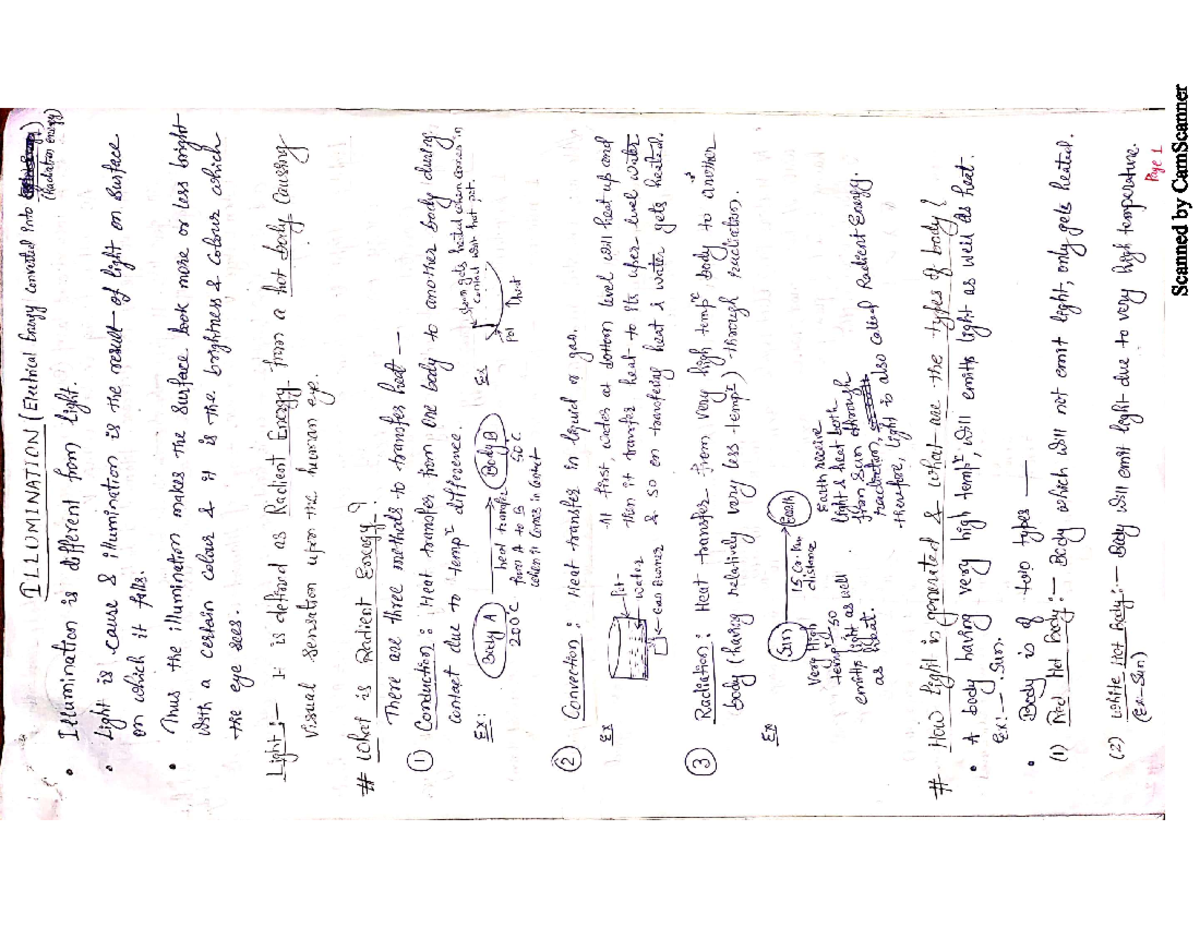 ILLUMINATION (Electrical Energy Converted Into
(Radiation energy)
• Illumination is different from Light.
• Light is cause & illumination is the result of light on surface
on which it falls.
• Thus the illumination makes the Surface look more or less bright
with a certain colour & it is the brightness & colour which
the eye sees.
Light :- It is defined as Radient Energy from a hot body causing
Visual Sensation upon the human eye.
# What is Radient Energy?
There are three methods to transfer heat —
① Conduction : Heat transfer from one body to another body during
contact due to tempr difference.
Ex: Body A
200°C
heat transfer
from A to B
when it comes in contact
Body B
50°C
Ex
spoon gets heated when comes in
contact with hot pot.
pot
② Convection : Heat transfer in liquid or gas.
Ex
Pot
water
Gas Burner
At first, water at bottom level will heat up and
then it transfer heat to its uper level water
& so on transfering heat & water gets heated.
③ Radiation : Heat transfer from very high tempr body to another
body (having relatively very less tempr) through radiation.
Ex
Sun
15 Co. Km
distance
Earth
Very High
tempr so
emitts light as well
as Heat.
Earth receive
light & heat both
from Sun through
radiation,
therefore, light is also called Radient Energy.
# How light is generated & what are the types of body?
• A body having very high tempr, will emitts light as well as heat.
Ex:- Sun.
• Body is of two types —
(1) Red Hot Body :- Body which will not emit light, only gets heated.
(2) White Hot Body :- Body will emit light due to very high temperature.
(Ex-Sun)
Page 1
Scanned by CamScanner